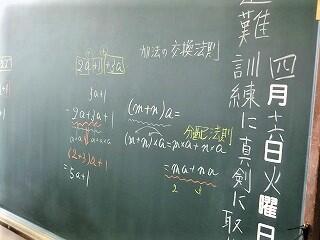 四月十六日火曜日
避難訓練に真剣に取
加法の交換法則
2a+1+3a
3a+1
=2a+3a+1
a+a+a+a+a
(2+3)a+1
=5a+1
(m+n)a=
分配法則
(m+n)×a=m×a+n×a
=ma+na